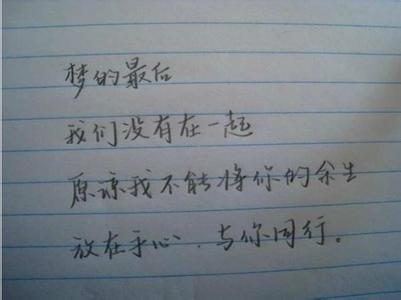 梦的最后
我们没有在一起
原谅我不能将你的余生
放在手心.与你同行。